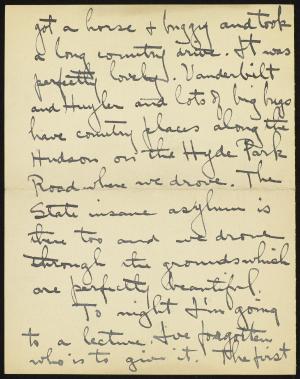 got a horse + buggy and took
a long country drive. It was
perfectly lovely. Vanderbilt
and Huyler and lots of big bugs
have country places along the
Hudson on the Hyde Park
Road where we drove. The
State insane asylum is
there too and we drove
through the grounds which
are perfectly beautiful.
To night I'm going
to a lecture. I've forgotten
who is to give it. The first